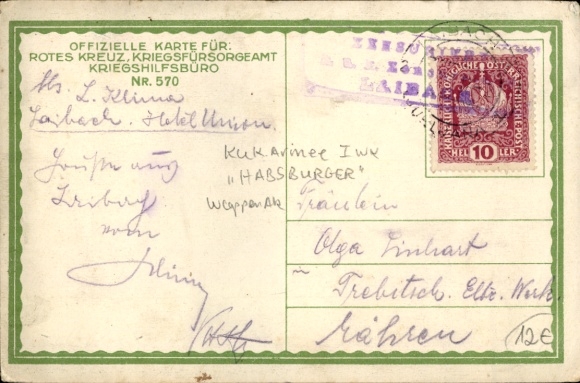 OFFIZIELLE KARTE FÜR:
ROTES KREUZ, KRIEGSFÜRSORGEAMT
KRIEGSHILFSBÜRO
NR. 570
Abs. L. Klima
Laibach. Hotel Union.
Grüße aus
Laibach
vom
Klima
KuK Armee I WK
"HABSBURGER"
Wappen AK
ZENSURIERT
K. u. K.
LAIBACH
KAISERLICHE KÖNIGLICHE ÖSTERREICHISCHE POST
HELLER
10
Fräulein
Olga Linhart
in
Trebitsch. Elktr. Werk.
Mähren
12€